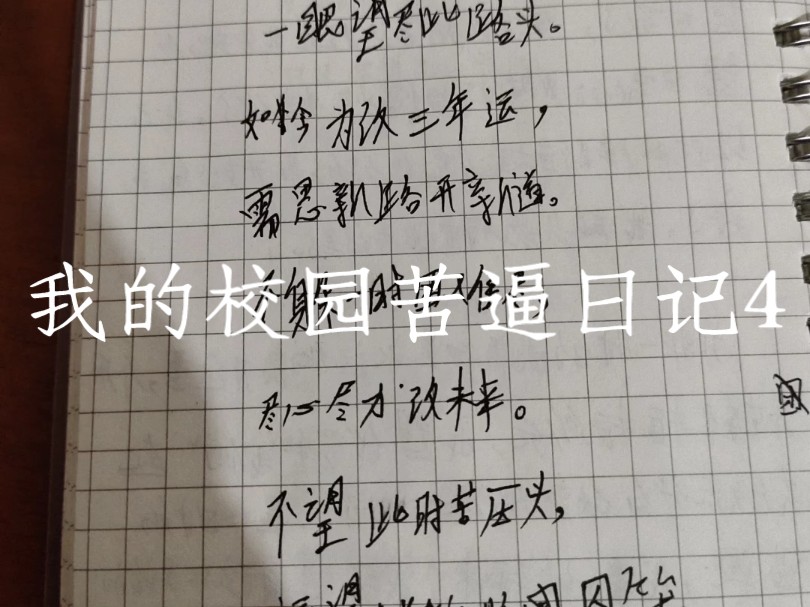 一眼望尽此路头。
如今为改三年运，
需思新路开新道。
我的校园苦逼日记4
尽心尽力改未来。
不望此时苦压头，